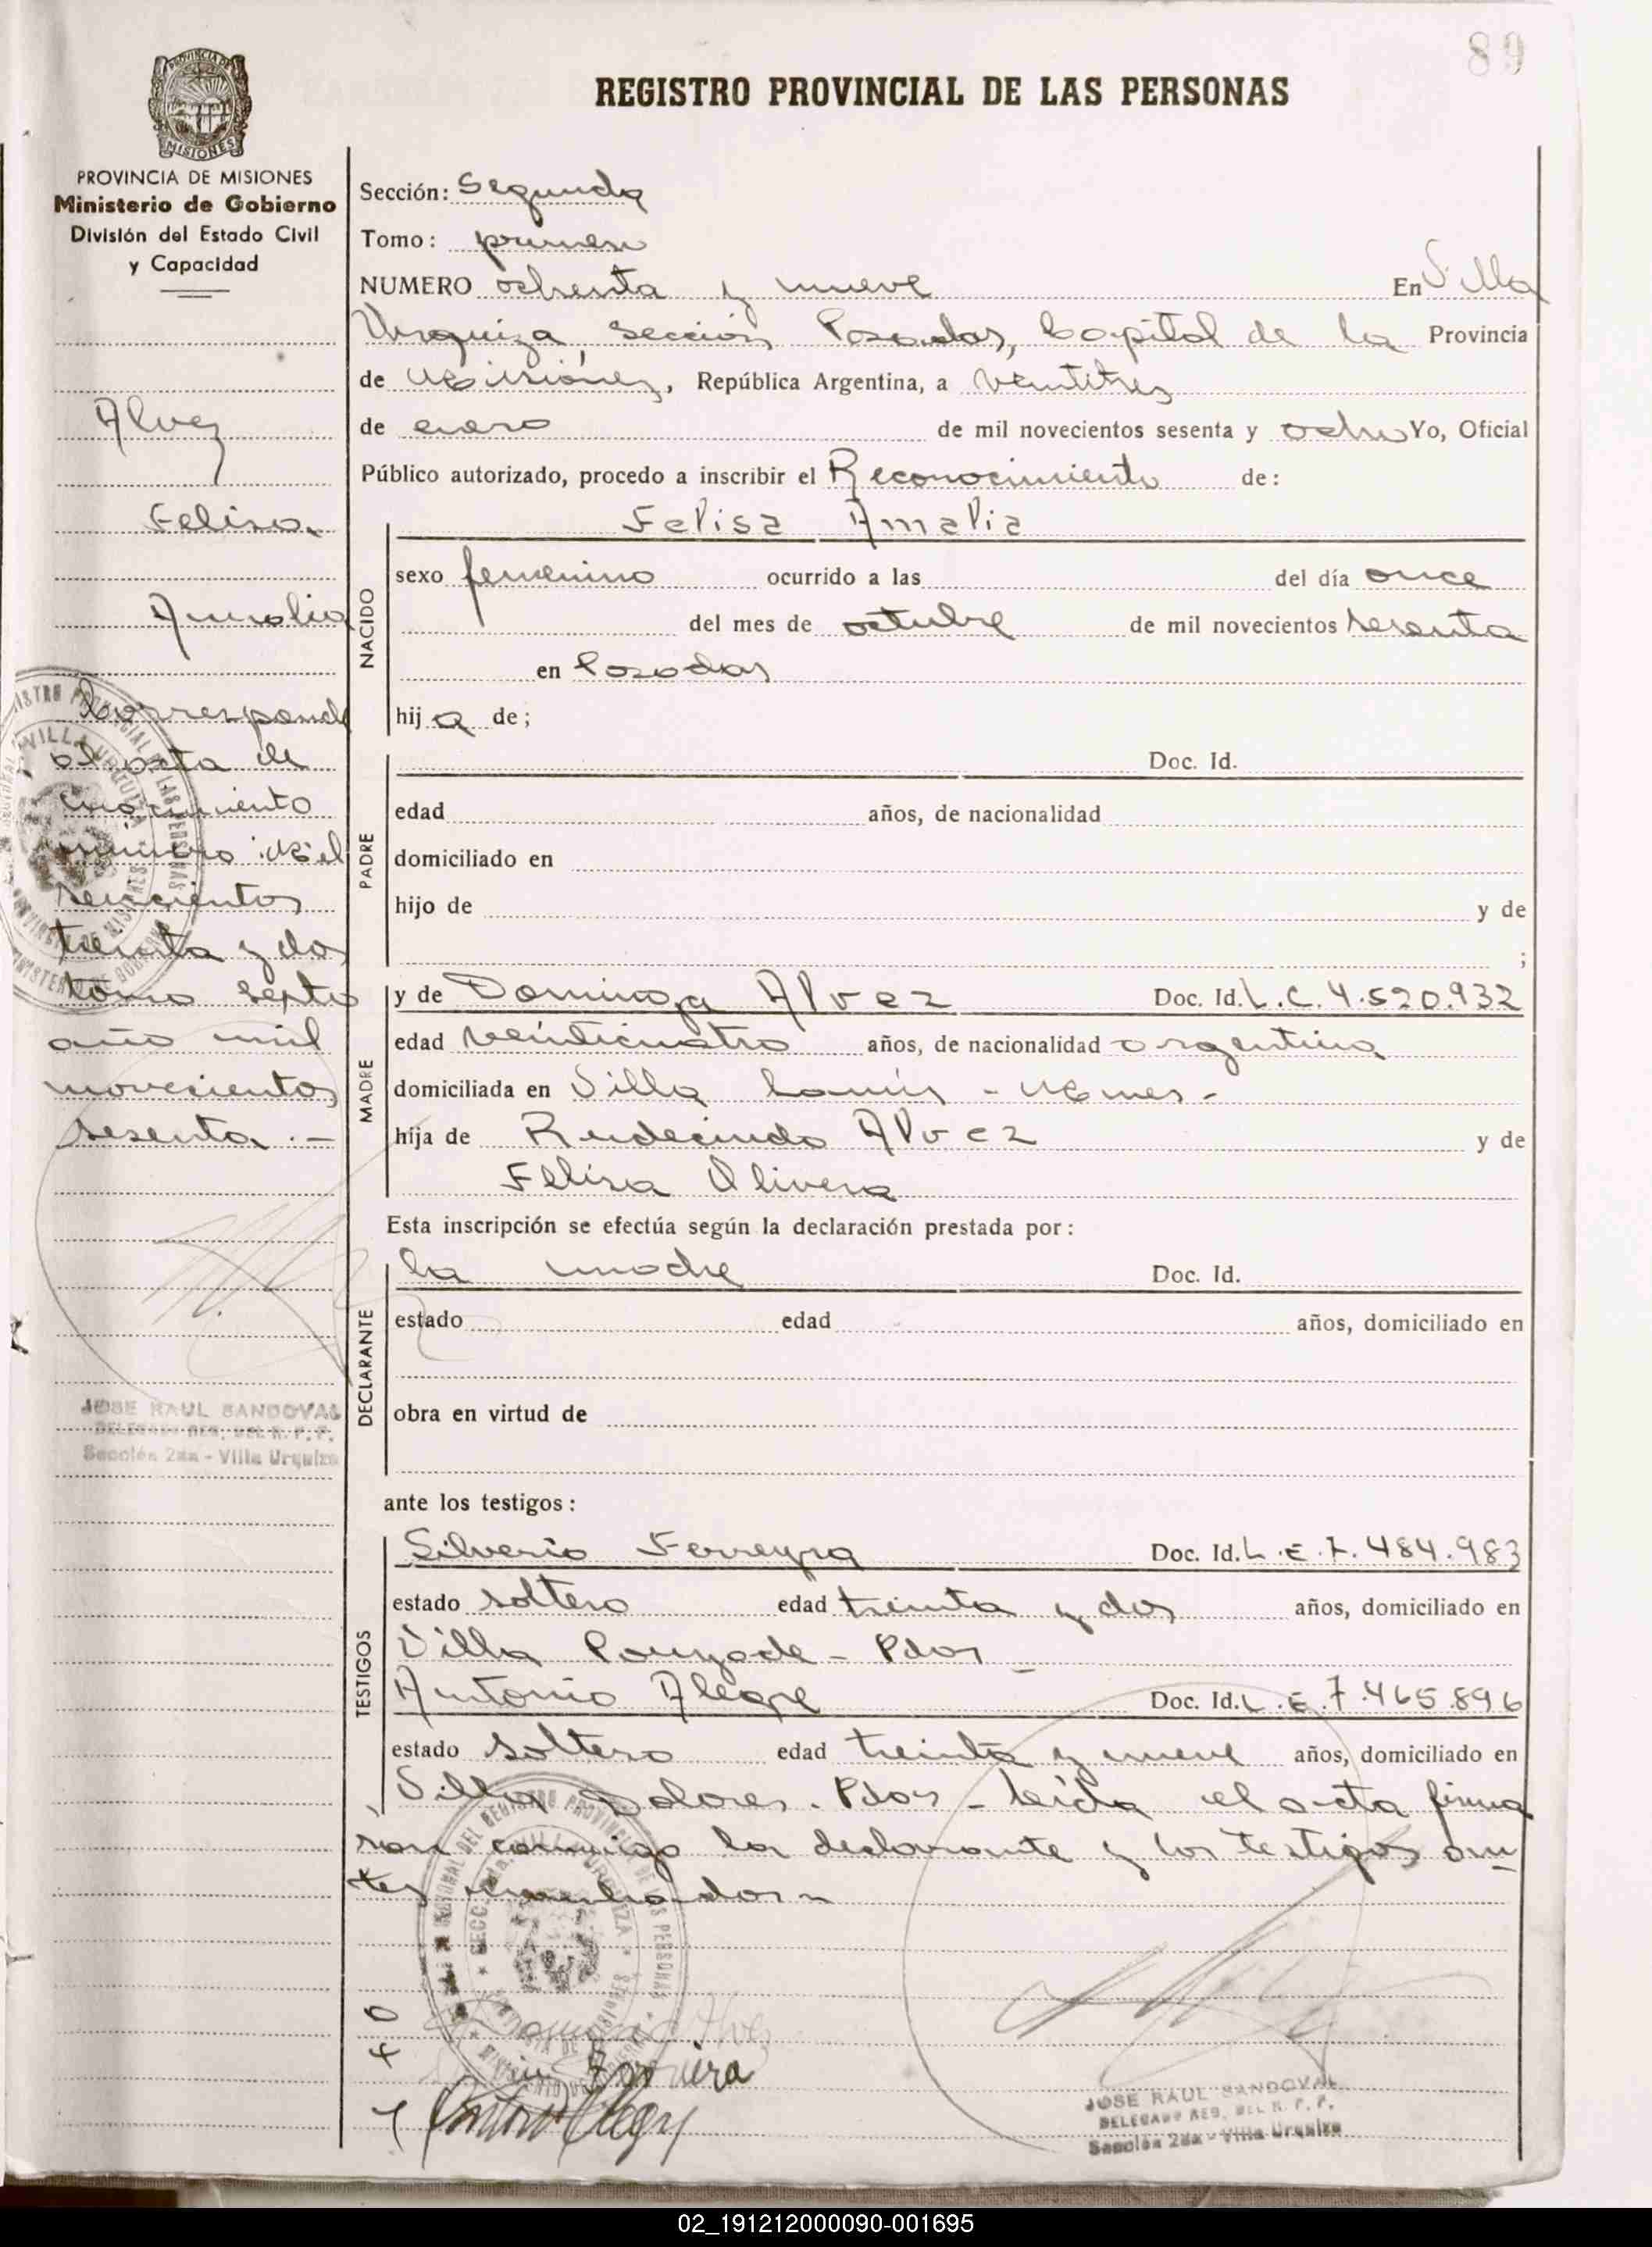 89
REGISTRO PROVINCIAL DE LAS PERSONAS
PROVINCIA DE
MISIONES
PROVINCIA DE MISIONES
Ministerio de Gobierno
División del Estado Civil
y Capacidad
Alvez
Felisa
Amalia
Corresponde
al acta de
nacimiento
número mil
seiscientos
treinta y dos
tomo septo
año mil
novecientos
sesenta.-
JOSE RAUL SANDOVAL
DELEGADO REG. DEL R. P. P.
Sección 2da - Villa Urquiza
Sección: Segunda
Tomo: primero
NUMERO ochenta y nueve En Villa
Urquiza, sección Posadas, Capital de la Provincia
de Misiones, República Argentina, a veintitres
de enero de mil novecientos sesenta y ocho Yo, Oficial
Público autorizado, procedo a inscribir el Reconocimiento de:
Felisa Amalia
NACIDO
sexo femenino ocurrido a las del día once
del mes de octubre de mil novecientos sesenta
en Posadas
hija de;
PADRE
Doc. Id.
edad años, de nacionalidad
domiciliado en
hijo de y de
;
MADRE
y de Dominga Alvez Doc. Id. L.C. 4.520.932
edad veinticuatro años, de nacionalidad argentina
domiciliada en Villa Lanús - Mnes-
hija de Rudecindo Alvez y de
Felisa Olivera
Esta inscripción se efectúa según la declaración prestada por:
DECLARANTE
la madre Doc. Id.
estado edad años, domiciliado en
obra en virtud de
ante los testigos:
TESTIGOS
Silverio Ferreyra Doc. Id. L.E. 7.484.983
estado soltero edad treinta y dos años, domiciliado en
Villa Poujade - Pdas -
Antonio Alegre Doc. Id. L.E. 7.465.896
estado soltero edad treinta y nueve años, domiciliado en
Villa Dolores. Pdas - Leída el acta firma
ron conmigo la declarante y los testigos an-
tes
Dominga Alvez
Antonio Alegre
JOSE RAUL SANDOVAL
DELEGADO REG. DEL R. P. P.
Sección 2da - Villa Urquiza
02_191212000090-001695